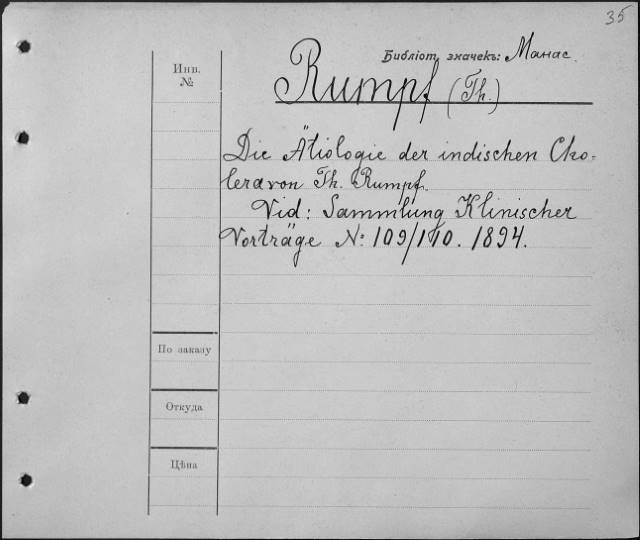 35
Библіот. значекъ: Манас.
Инв.
№
Rumpf (Th.)
Die Ätiologie der indischen Cho-
lera von Th. Rumpf.
Vid: Sammlung Klinischer
Vorträge №: 109/110. 1894.
По заказу
Откуда
Цѣна